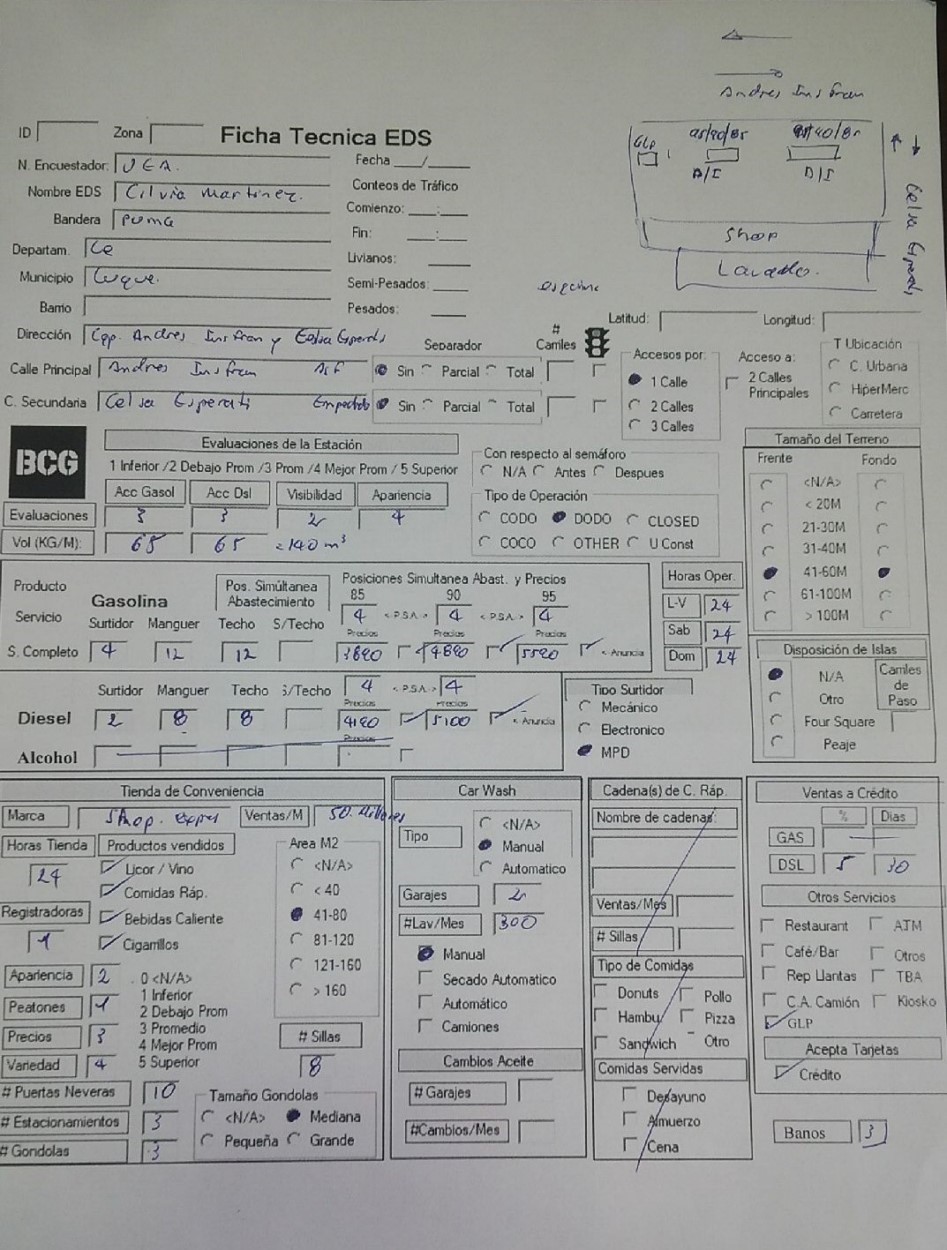 Andres Insfran
ID Zona Ficha Tecnica EDS
GLP 95/90/85 95/90/85
D/S D/S
N. Encuestador: UEA. Fecha ___/___
Nombre EDS Cilvia Martinez. Conteos de Tráfico
Bandera Puma Comienzo: __:__
Celsa Esperati
Shop
Departam. Ce Fin: __:__
Livianos:
Lavado.
Municipio Luque. Semi-Pesados:
Barrio Pesados:
Latitud: Longitud:
Dirección Cap. Andres Insfran y Celsa Esperati
Separador # Carriles Accesos por: Acceso a: T Ubicación
Calle Principal Andres Insfran Asf Sin Parcial Total 1 Calle 2 Calles Principales C. Urbana
2 Calles HiperMerc
C. Secundaria Celsa Esperati Empedrado Sin Parcial Total 3 Calles Carretera
BCG
Evaluaciones de la Estación
1 Inferior /2 Debajo Prom /3 Prom /4 Mejor Prom / 5 Superior
Acc Gasol Acc Dsl Visibilidad Apariencia
Evaluaciones 3 3 2 4
Vol (KG/M): 65 65 =140 m³
Con respecto al semáforo
N/A Antes Despues
Tipo de Operación
CODO DODO CLOSED
COCO OTHER U Const
Tamaño del Terreno
Frente Fondo
<N/A>
< 20M
21-30M
31-40M
41-60M
61-100M
> 100M
Producto Pos. Simúltanea Abastecimiento Posiciones Simultanea Abast. y Precios
Servicio Gasolina 85 90 95
Surtidor Manguer Techo S/Techo 4 < P.S.A. > 4 < P.S.A. > 4
Precios Precios Precios
S. Completo 4 12 12 3890 4890 5590 < Anuncia
Horas Oper.
L-V 24
Sab 24
Dom 24
Surtidor Manguer Techo S/Techo 4 < P.S.A. > 4
Precios Precios
Diesel 2 8 8 4190 5100 < Anuncia
Precios
Alcohol
Tipo Surtidor
Mecánico
Electronico
MPD
Disposición de Islas
N/A Carriles de Paso
Otro
Four Square
Peaje
Tienda de Conveniencia
Marca Shop. expres Ventas/M 50. Millones
Horas Tienda Productos vendidos Area M2
24 Licor / Vino <N/A>
Comidas Ráp. < 40
Registradoras Bebidas Caliente 41-80
1 Cigarrillos 81-120
Apariencia 2 0 <N/A> 121-160
Peatones 1 1 Inferior > 160
2 Debajo Prom
Precios 3 3 Promedio # Sillas
4 Mejor Prom
Variedad 4 5 Superior 8
# Puertas Neveras 10 Tamaño Gondolas
# Estacionamientos 3 <N/A> Mediana
# Gondolas 3 Pequeña Grande
Car Wash
Tipo <N/A>
Manual
Automatico
Garajes 2
#Lav/Mes 300
Manual
Secado Automatico
Automático
Camiones
Cambios Aceite
# Garajes
#Cambios/Mes
Cadena(s) de C. Ráp.
Nombre de cadena:
Ventas/Mes
# Sillas
Tipo de Comidas
Donuts Pollo
Hambu Pizza
Sandwich Otro
Comidas Servidas
Desayuno
Almuerzo
Cena
Ventas a Crédito
% Dias
GAS
DSL 5 30
Otros Servicios
Restaurant ATM
Café/Bar Otros
Rep Llantas TBA
C.A. Camión Kiosko
GLP
Acepta Tarjetas
Crédito
Banos 3